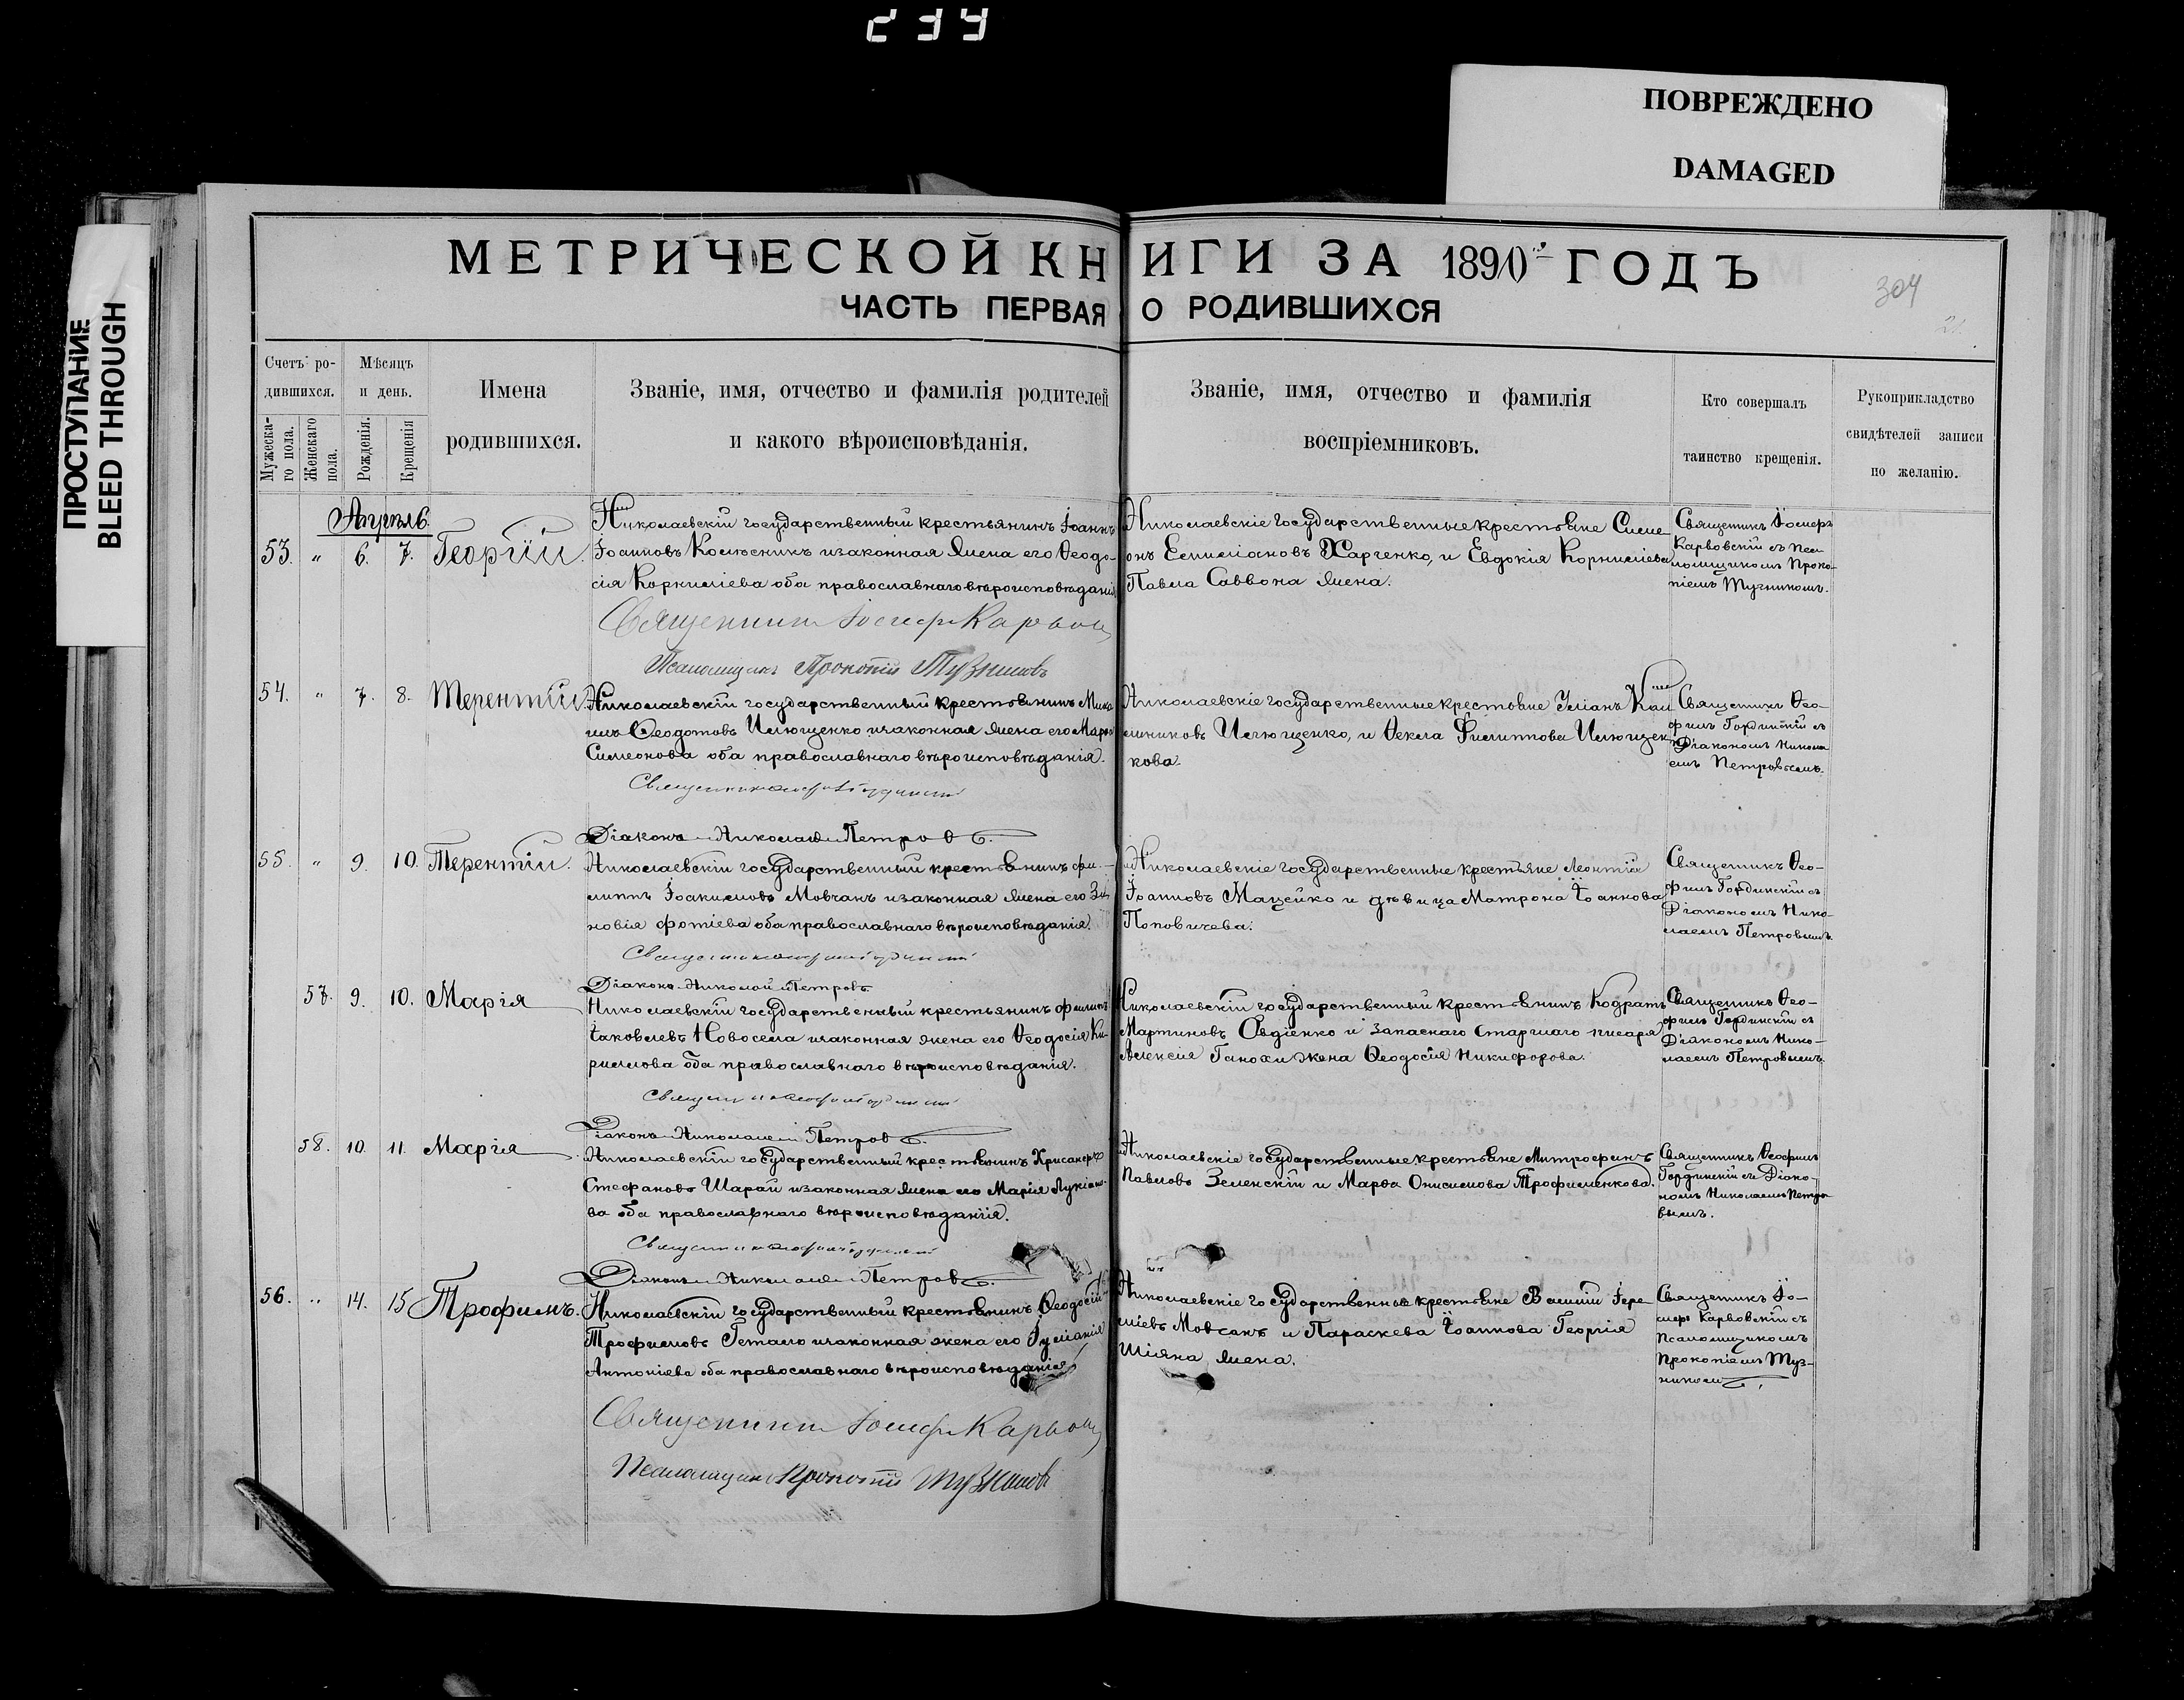 234
ПОВРЕЖДЕНО
DAMAGED
ПРОСТУПАНИЕ
BLEED THROUGH
МЕТРИЧЕСКОЙ КНИГИ ЗА 1890 ГОДЪ
ЧАСТЬ ПЕРВАЯ О РОДИВШИХСЯ
304
Счетъ ро-
дившихся.
Мужеска-
го пола.
Женскаго
пола.
Мѣсяцъ
и день.
Рожденія.
Крещенія
Имена
родившихся.
Званіе, имя, отчество и фамилія родителей
и какого вѣроисповѣданія.
Званіе, имя, отчество и фамилія
воспріемниковъ.
Кто совершалъ
таинство крещенія.
Рукоприкладство
свидѣтелей записи
по желанію.
Апрѣль
53. " 6. 7. Георгій.
Николаевскій государственный крестьянинъ Іоаннъ
Іоанновъ Колѣсникъ и законная жена его Ѳеодо-
сія Корниліева оба православнаго вѣроисповѣданія
Николаевскіе государственные крестьяне Симе
онъ Емиліановъ Харченко, и Евдокія Корниліева
Павла Саввона жена.
Священникъ Іосифъ
Карвовскій съ Пса
ломщикомъ Проко-
піемъ
Священникъ Іосифъ
Псаломщикъ Прокопій
54. " 7. 8. Терентій
Николаевскій государственный крестьянинъ
Ѳеодотовъ Ильющенко и законная жена его
Симеонова оба православнаго вѣроисповѣданія.
Николаевскіе государственные крестьяне
Ильющенко, и Ѳекла Филиппова
кова.
Священникъ Ѳео-
филъ Гординскій съ
Діакономъ Никола
емъ Петровымъ.
Діаконъ Николай Петровъ.
55. " 9. 10. Терентій.
Николаевскій государственный крестьянинъ Фи-
липпъ Іоакимовъ Мовчанъ и законная жена его Зи
новія Фотіева оба православнаго вѣроисповѣданія.
Николаевскіе государственные крестьяне Леонтій
Іоанновъ Мацейко и дѣвица Матрона Іоаннова
Поповичева.
Священникъ Ѳео-
филъ Гординскій съ
Діакономъ Нико-
лаемъ Петровымъ.
Діаконъ Николай Петровъ
57. 9. 10. Марія
Николаевскій государственный крестьянинъ Филиппъ
Іаковлевъ Новосела и законная жена его Ѳеодосія Ки-
риллова оба православнаго вѣроисповѣданія.
Николаевскій государственный крестьянинъ Кодратъ
Мартиновъ Овдіенко и запаснаго старшаго писаря
Алексія Ганохи жена Ѳеодосія Никифорова.
Священникъ Ѳео-
филъ Гординскій съ
Діакономъ Нико-
лаемъ Петровымъ.
Діаконъ Николай Петровъ.
58. 10. 11. Марія
Николаевскій государственный крестьянинъ Хрисанфъ
Стефановъ Шарай и законная жена его Марія Лукіано-
ва оба православнаго вѣроисповѣданія.
Николаевскіе государственные крестьяне Митрофанъ
Павловъ Зеленскій и Марѳа Онисимова Трофименкова.
Священникъ Ѳеофилъ
Гординскій съ Діако-
номъ Николаемъ Петро
вымъ.
Діаконъ Николай Петровъ.
56. " 14. 15 Трофимъ.
Николаевскій государственный крестьянинъ Ѳеодосій
Трофимовъ Гетало и законная жена его Іуліанія
Антоніева оба православнаго вѣроисповѣданія
Николаевскіе государственные крестьяне Василій Іере
міевъ Мовчанъ и Параскева Іоаннова Георгія
Шіяна жена.
Священникъ Іо-
сифъ Карвовскій съ
Псаломщикомъ
Прокопіемъ
Священникъ Іосифъ
Псаломщикъ Прокопій